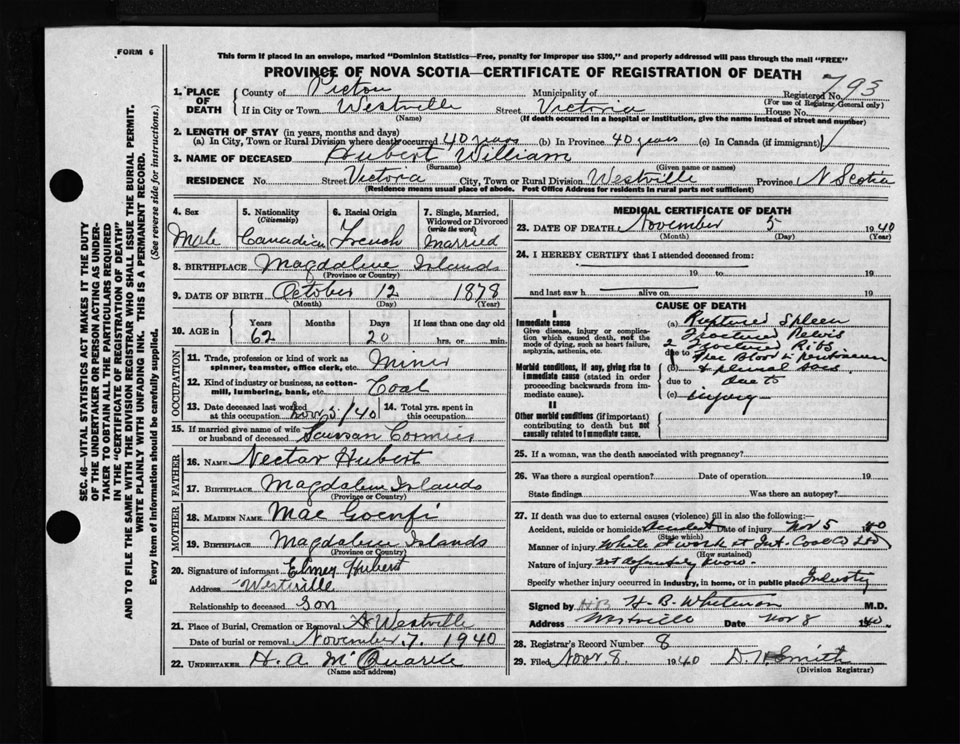 FORM 6
This form if placed in an envelope, marked "Dominion Statistics—Free, penalty for improper use $300," and properly addressed will pass through the mail "FREE"
PROVINCE OF NOVA SCOTIA—CERTIFICATE OF REGISTRATION OF DEATH
793
1. PLACE OF DEATH
County of Pictou Municipality of Registered No.
(For use of Registrar General only)
If in City or Town Westville Street Victoria House No.
(Name) (If death occurred in a hospital or institution, give the name instead of street and number)
2. LENGTH OF STAY (in years, months and days)
(a) In City, Town or Rural Division where death occurred 40 years (b) In Province 40 years (c) In Canada (if immigrant)
3. NAME OF DECEASED Hubert William
(Surname) (Given name or names)
RESIDENCE No. Street Victoria City, Town or Rural Division Westville Province N Scotia
(Residence means usual place of abode. Post Office Address for residents in rural parts not sufficient)
4. Sex
Male
5. Nationality (Citizenship)
Canadian
6. Racial Origin
French
7. Single, Married, Widowed or Divorced (write the word)
Married
8. BIRTHPLACE Magdaline Islands
(Province or Country)
9. DATE OF BIRTH October 12 1878
(Month) (Day) (Year)
10. AGE in
Years Months Days If less than one day old
62 20 hrs. or min.
OCCUPATION
11. Trade, profession or kind of work as spinner, teamster, office clerk, etc. Miner
12. Kind of industry or business, as cotton-mill, lumbering, bank, etc. Coal
13. Date deceased last worked at this occupation Nov 5/40
14. Total yrs. spent in this occupation
15. If married give name of wife or husband of deceased Saussan Cormier
FATHER
16. NAME Nectar Hubert
17. BIRTHPLACE Magdalin Islands
(Province or Country)
MOTHER
18. MAIDEN NAME Mae
19. BIRTHPLACE Magdalin Islands
(Province or Country)
20. Signature of informant Elmer Hubert
Address Westville
Relationship to deceased Son
21. Place of Burial, Cremation or Removal Westville
Date of burial or removal November 7. 1940
22. UNDERTAKER H. A McQuarrie
(Name and address)
MEDICAL CERTIFICATE OF DEATH
23. DATE OF DEATH November 5 1940
(Month) (Day) (Year)
24. I HEREBY CERTIFY that I attended deceased from:
19 to 19
and last saw h alive on 19
CAUSE OF DEATH
I
Immediate cause
Give disease, injury or complication which caused death, not the mode of dying, such as heart failure, asphyxia, asthenia, etc.
Morbid conditions, if any, giving rise to immediate cause (stated in order proceeding backwards from immediate cause).
II
Other morbid conditions (if important) contributing to death but not causally related to immediate cause.
(a) Ruptured Spleen
Fractured Pelvis
2 Fractured Ribs
due to Free Blood in peritoneum
(b) & plural sacs
due to due to
(c) injury
25. If a woman, was the death associated with pregnancy?
26. Was there a surgical operation? Date of operation 19
State findings Was there an autopsy?
27. If death was due to external causes (violence) fill in also the following:—
Accident, suicide or homicide? Accident Date of injury Nov 5 1940
(State which)
Manner of injury While at work at Int. Coal Co Ltd
(How sustained)
Nature of injury not definitely known
Specify whether injury occurred in industry, in home, or in public place Industry
Signed by H. B. Whitman M.D.
Address Westville Date Nov 8 1940
28. Registrar's Record Number 8
29. Filed Nov 8. 1940 Smith
(Division Registrar)
SEC. 46—VITAL STATISTICS ACT MAKES IT THE DUTY
OF THE UNDERTAKER OR PERSON ACTING AS UNDER-
TAKER TO OBTAIN ALL THE PARTICULARS REQUIRED
IN THE "CERTIFICATE OF REGISTRATION OF DEATH"
AND TO FILE THE SAME WITH THE DIVISION REGISTRAR WHO SHALL ISSUE THE BURIAL PERMIT.
WRITE PLAINLY WITH UNFADING INK. THIS IS A PERMANENT RECORD.
Every item of information should be carefully supplied. (See reverse side for instructions.)